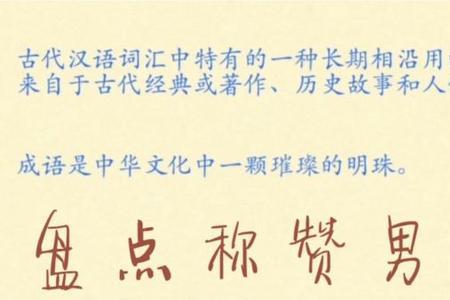 古代汉语词汇中特有的一种长期相沿用
来自于古代经典或著作、历史故事和人
成语是中华文化中一颗璀璨的明珠。
盘点称赞男